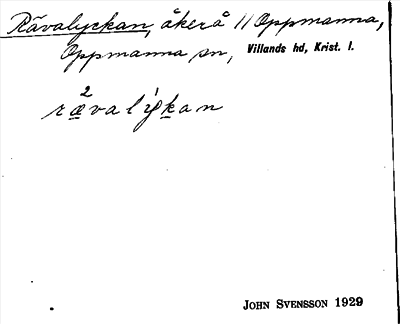 Rävalyckan, åkerå // Oppmanna,
Oppmanna sn, Villands hd, Krist. l.
2
rævalýkan
JOHN SVENSSON 1929